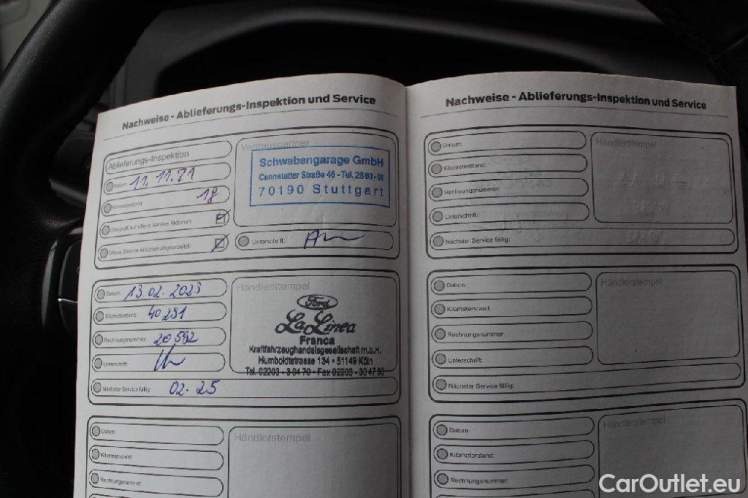 Nachweise - Ablieferungs-Inspektion und Service
Ablieferungs-Inspektion
Datum: 11.11.21
Kilometerstand: 18
Schwabengarage GmbH
Cannstatter Straße 46 - Tel.
70190 Stuttgart
Unterschrift:
Datum: 13.02.2023
Kilometerstand: 40251
Rechnungsnummer: 20592
Unterschrift:
Nächster Service fällig: 02-25
Händlerstempel
Ford
La Linea
Franca
Kraftfahrzeughandelsgesellschaft m.b.H.
Humboldtstrasse 134 · 51149 Köln
Tel. 02203 - 3 04 70 - Fax 02203 - 30 47 50
Datum:
Kilometerstand:
Rechnungsnummer:
Händlerstempel
Nachweise - Ablieferungs-Inspektion und Service
Datum:
Kilometerstand:
Rechnungsnummer:
Unterschrift:
Nächster Service fällig:
Händlerstempel
Datum:
Kilometerstand:
Rechnungsnummer:
Unterschrift:
Nächster Service fällig:
Händlerstempel
Datum:
Kilometerstand:
Rechnungsnummer:
Händlerstempel
CarOutlet.eu